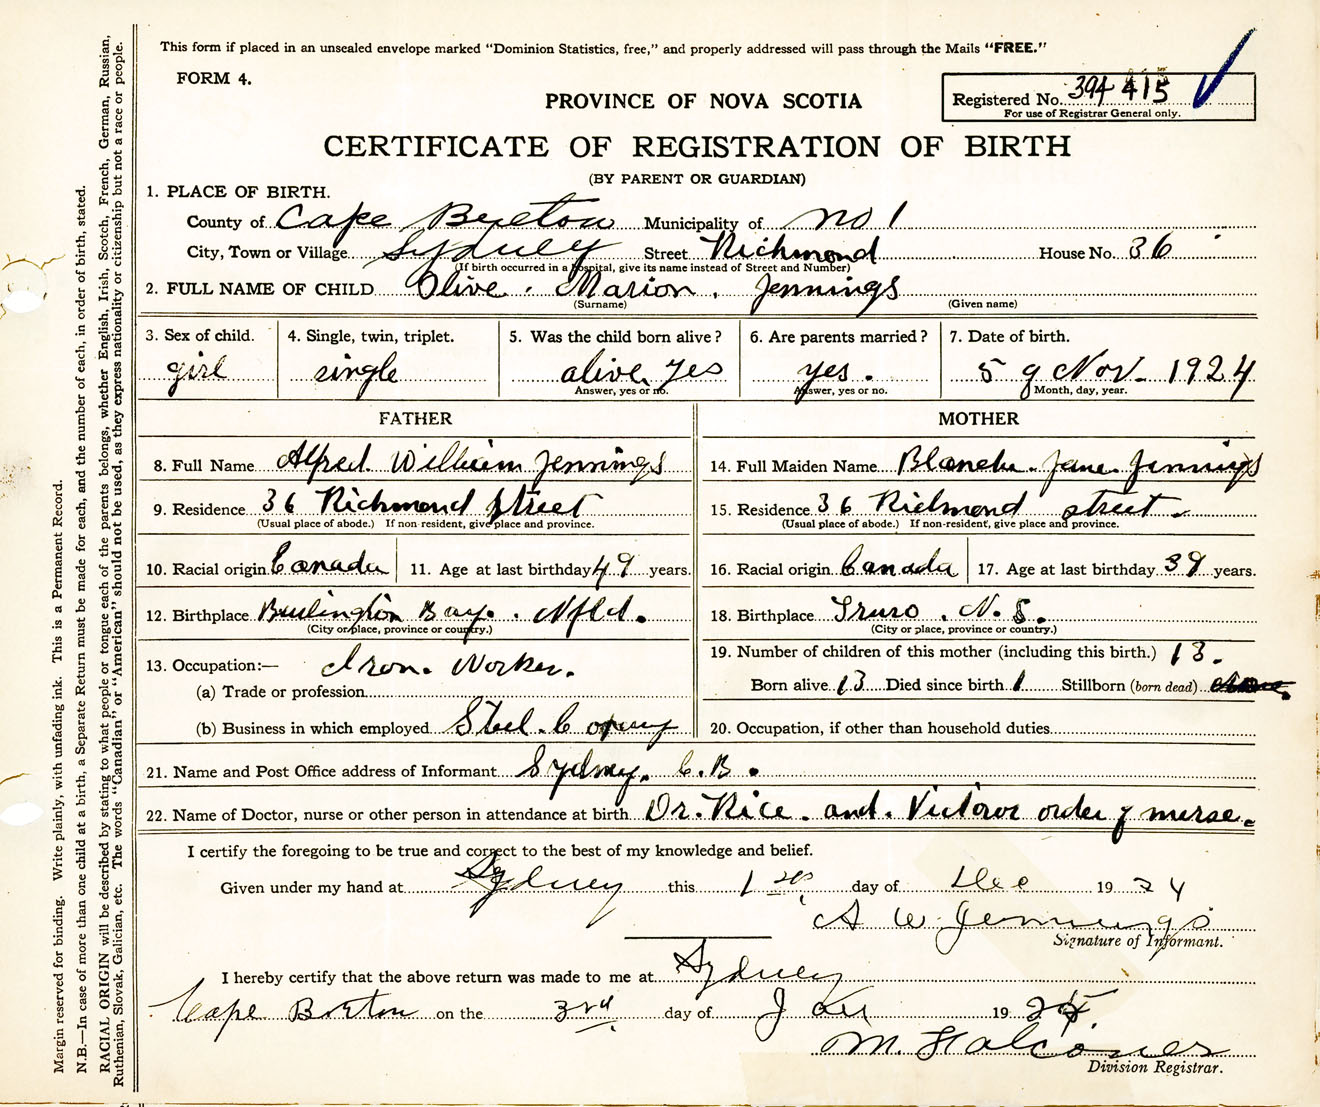 This form if placed in an unsealed envelope marked "Dominion Statistics, free," and properly addressed will pass through the Mails "FREE."
FORM 4.
Registered No. 394 415
For use of Registrar General only.
PROVINCE OF NOVA SCOTIA
CERTIFICATE OF REGISTRATION OF BIRTH
(BY PARENT OR GUARDIAN)
1. PLACE OF BIRTH.
County of Cape Breton Municipality of No 1
City, Town or Village Sydney Street Richmond House No. 36
(If birth occurred in a hospital, give its name instead of Street and Number)
2. FULL NAME OF CHILD Olive. Marion. Jennings
(Surname) (Given name)
3. Sex of child. 4. Single, twin, triplet. 5. Was the child born alive? 6. Are parents married? 7. Date of birth.
girl single alive. yes yes. 5 g Nov. 1924
Answer, yes or no. Answer, yes or no. Month, day, year.
FATHER MOTHER
8. Full Name Alfred William Jennings 14. Full Maiden Name Blanche. Jane. Jennings
9. Residence 36 Richmond Street 15. Residence 36 Richmond street.
(Usual place of abode.) If non-resident, give place and province. (Usual place of abode.) If non-resident, give place and province.
10. Racial origin Canada 11. Age at last birthday 49 years. 16. Racial origin Canada 17. Age at last birthday 39 years.
12. Birthplace Burlington Bay. Nfld. 18. Birthplace Truro. N. S.
(City or place, province or country.) (City or place, province or country.)
13. Occupation:— Iron. Worker. 19. Number of children of this mother (including this birth.) 13.
(a) Trade or profession Born alive 13 Died since birth 1 Stillborn (born dead)
(b) Business in which employed Steel. 20. Occupation, if other than household duties
21. Name and Post Office address of Informant Sydney. C. B.
22. Name of Doctor, nurse or other person in attendance at birth Dr. Rice. and. Victoror order g nurse.
I certify the foregoing to be true and correct to the best of my knowledge and belief.
Given under my hand at Sydney this 1st day of Dec 1924
A W Jennings
Signature of Informant.
I hereby certify that the above return was made to me at Sydney
Cape Breton on the 3rd day of Jan 1925
M. Falconer
Division Registrar.
Margin reserved for binding. Write plainly, with unfading ink. This is a Permanent Record.
N.B.—In case of more than one child at a birth, a Separate Return must be made for each, and the number of each, in order of birth, stated.
RACIAL ORIGIN will be described by stating to what people or tongue each of the parents belongs, whether English, Irish, Scotch, French, German, Russian,
Ruthenian, Slovak, Galician, etc. The words "Canadian" or "American" should not be used, as they express nationality or citizenship but not a race or people.